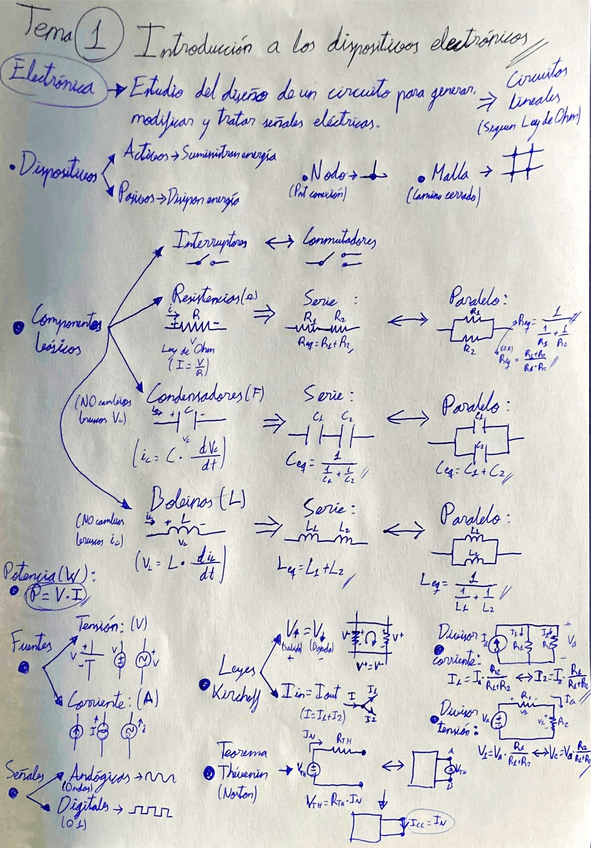 Tema 1 Introducción a los dispositivos electrónicos
Electrónica → Estudio del diseño de un circuito para generar,
modificar y tratar señales eléctricas.
⇒ Circuitos
lineales
(Siguen Ley de Ohm)
• Dispositivos
Activos → Suministran energía
Pasivos → Disipan energía
• Nodo →
(Pnt conexión)
• Malla →
(Camino cerrado)
• Componentes
básicos
Interruptores ↔ Conmutadores
Resistencias (Ω)
R
Ley de Ohm
(I = V/R)
⇒ Serie:
R1 R2
Req = R1 + R2
↔ Paralelo:
R1
R2
Req = 1 / (1/R1 + 1/R2)
(NO cambios
bruscos Vc)
Condensadores (F)
+ C -
Vc
(ic = C · dVc/dt)
⇒ Serie:
C1 C2
Ceq = 1 / (1/C1 + 1/C2)
↔ Paralelo:
C1
C2
Ceq = C1 + C2
(NO cambios
bruscos iL)
Bobinas (L)
+ L -
VL
(VL = L · diL/dt)
⇒ Serie:
L1 L2
Leq = L1 + L2
↔ Paralelo:
L1
L2
Leq = 1 / (1/L1 + 1/L2)
Potencia (W):
• P = V·I
Fuentes
•
Tensión: (V)
Corriente: (A)
• Leyes
Kirchoff
Iin = Iout
(I = I1 + I2)
I I1
I2
Divisor
• corriente:
• Divisor
tensión:
Señales
•
Analógicas →
(Ondas)
Digitales →
(0's 1's)
• Teorema
Thévenin
(Norton)
IN RTH
VTH
VTH = RTH · IN
↔
A
VTH
Icc = IN